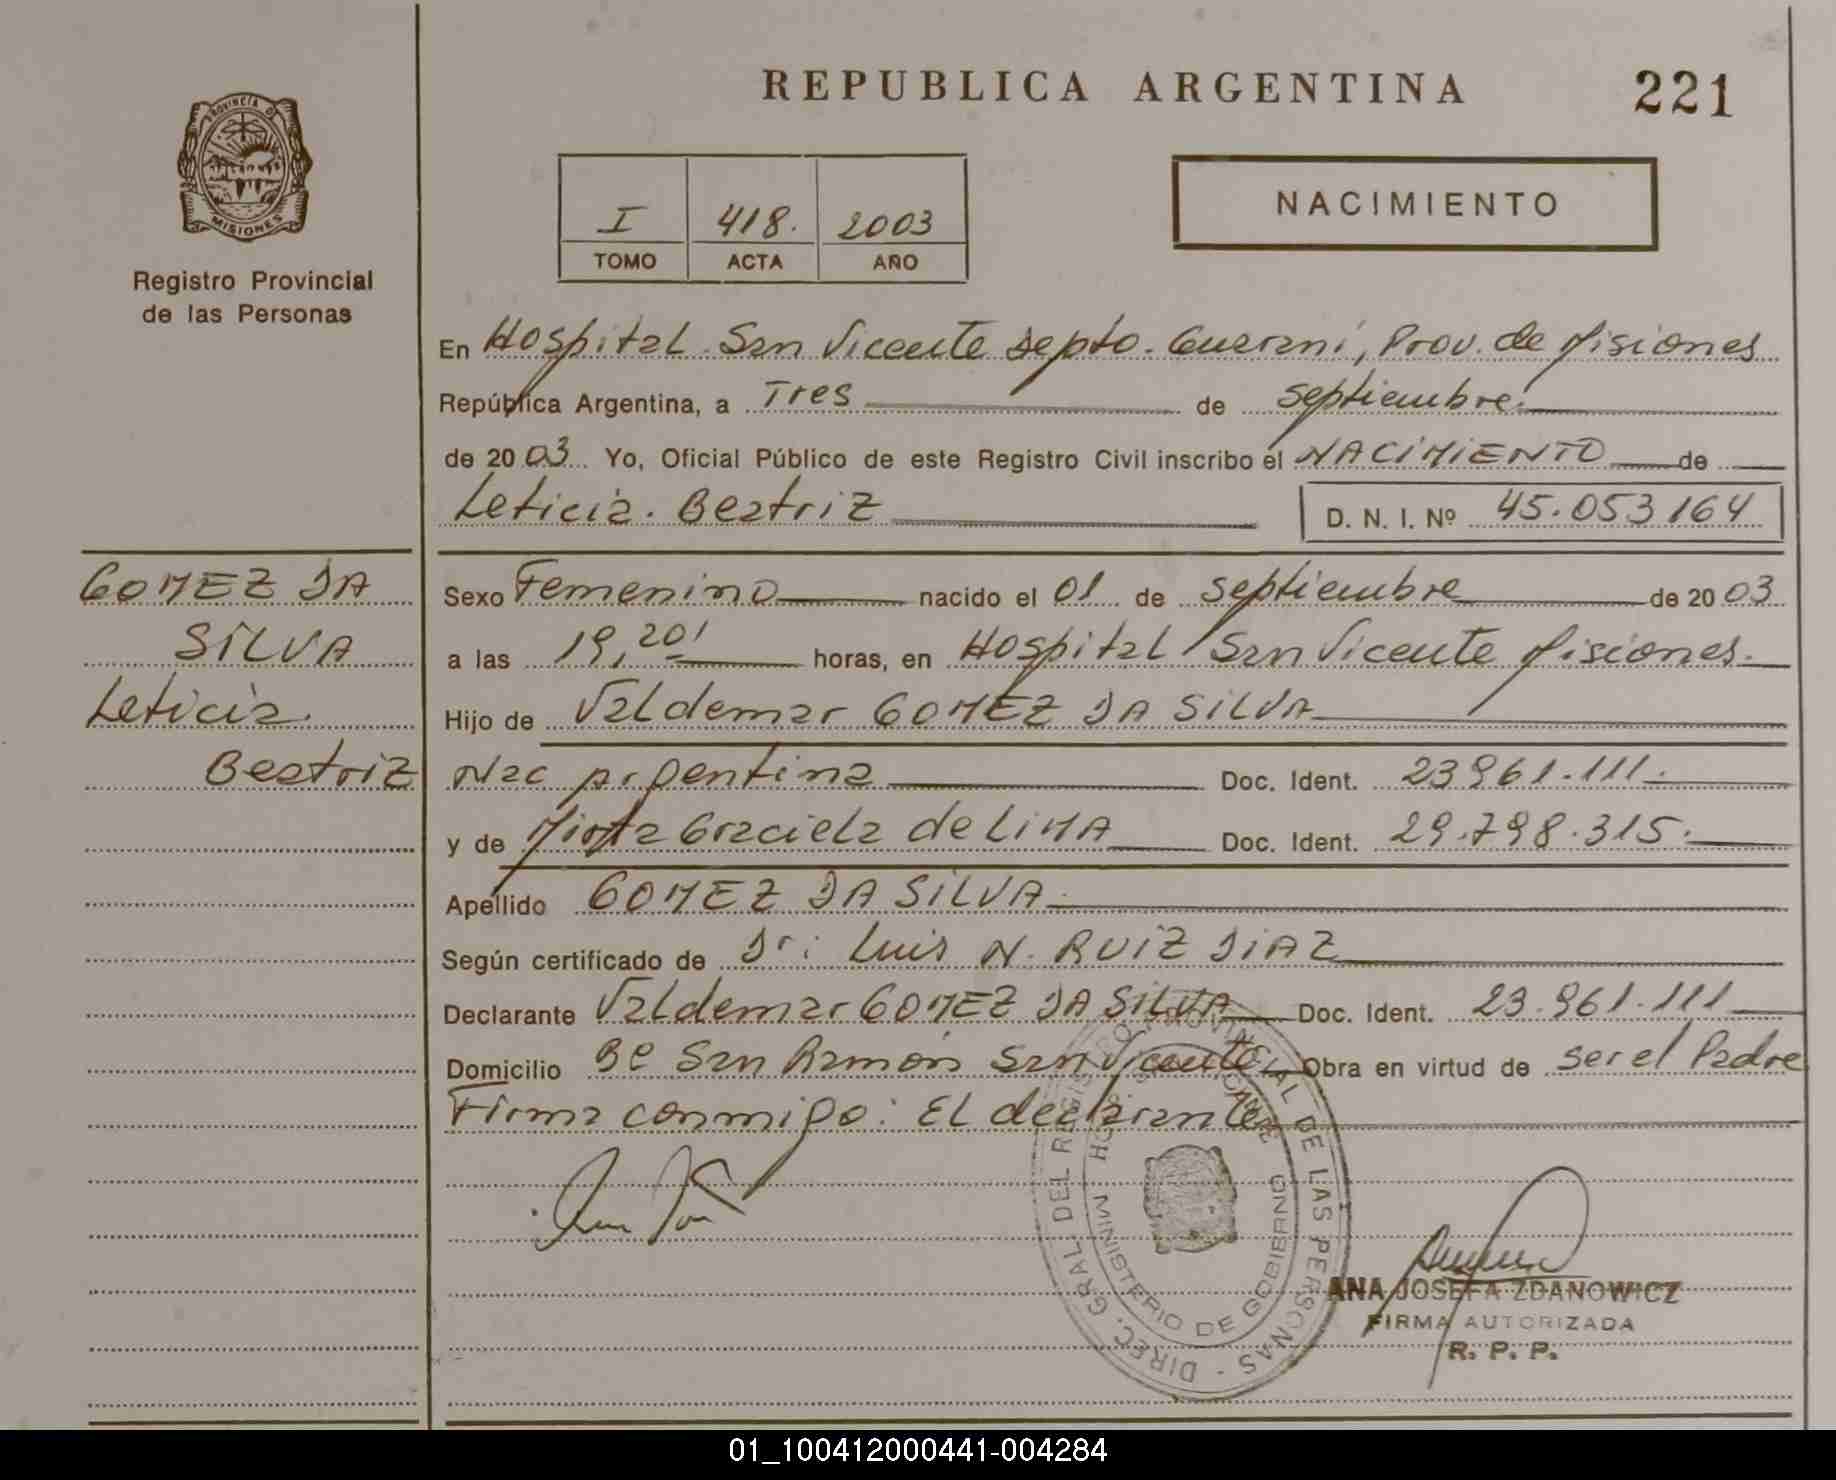 REPUBLICA ARGENTINA
221
PROVINCIA DE
MISIONES
Registro Provincial
de las Personas
I 418. 2003
TOMO ACTA AÑO
NACIMIENTO
En Hospital San Vicente Depto. Guaraní, Prov. de Misiones
República Argentina, a Tres de septiembre
de 2003 Yo, Oficial Público de este Registro Civil inscribo el NACIMIENTO de
Leticia Beatriz D. N. I. Nº 45.053 164
GOMEZ DA
SILVA
Leticia
Beatriz
Sexo Femenino nacido el 01 de septiembre de 2003
a las 19,20' horas, en Hospital San Vicente Misiones.
Hijo de Valdemar GOMEZ DA SILVA
Nac Argentina Doc. Ident. 23961.111.
y de Mirta Graciela de LIMA Doc. Ident. 29.798.315.
Apellido GOMEZ DA SILVA
Según certificado de Dr: Luis N. RUIZ DIAZ
Declarante Valdemar GOMEZ DA SILVA Doc. Ident. 23.961.111
Domicilio Bº San Ramón San Vicente Obra en virtud de ser el Padre
Firma conmigo: El declarante
DIREC. GRAL. DEL REGISTRO PROVINCIAL DE LAS PERSONAS -
MINISTERIO DE GOBIERNO
ANA JOSEFA ZDANOWICZ
FIRMA AUTORIZADA
R. P. P.
01_100412000441-004284